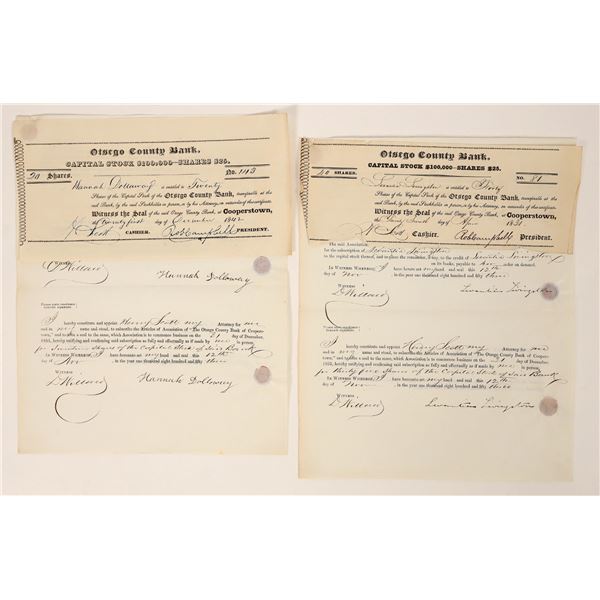 Otsego County Bank.
CAPITAL STOCK $100,000—SHARES $25.
20 Shares. No. 143
Hannah Dolloway is entitled to Twenty
Shares of the Capital Stock of the Otsego County Bank, transferable at
the said Bank, by the said Stockholder in person, or by Attorney, on surrender of this certificate.
Witness the Seal of the said Otsego County Bank, at Cooperstown,
the twenty first day of December 1842
H Scott CASHIER. Rob Campbell PRESIDENT.
WITNESS
Willard Hannah Dolloway
I hereby constitute and appoint Henry Scott my Attorney for me
and in my name and stead, to subscribe the Articles of Association of "The Otsego County Bank of Cooperstown," said Association to commence business on the 31 day of December,
1853, hereby ratifying and confirming said subscription as fully and effectually as if made by me in person
for Twenty Shares of the Capital Stock of said Bank
IN WITNESS WHEREOF, I have hereunto set my hand and seal this 12th
day of Nov in the year one thousand eight hundred and fifty three
WITNESS
Willard Hannah Dolloway
Otsego County Bank.
CAPITAL STOCK $100,000—SHARES $25.
40 SHARES. NO. 81
is entitled to
Shares of the Capital Stock of the Otsego County Bank, transferable at
the said Bank, by the said Stockholder in person, or by Attorney, on surrender of this certificate.
Witness the Seal of the said Otsego County Bank, at Cooperstown,
the day of 1831.
H Scott Cashier. Rob Campbell President.
the said Association.
for the subscription of Livingston
to the capital stock thereof, and to place the remainder, if any, to the credit of Livingston
on its books, payable to her order on demand.
IN WITNESS WHEREOF, I have hereunto set my hand and seal this 12th
day of Nov in the year one thousand eight hundred and fifty three
WITNESS
Willard Livingston
I hereby constitute and appoint Henry Scott my Attorney for me
and in my name and stead, to subscribe the Articles of Association of "The Otsego County Bank of Cooperstown," said Association to commence business on the 31 day of December,
1853, hereby ratifying and confirming said subscription as fully and effectually as if made by me in person
for thirty five Shares of the Capital Stock of said Bank
IN WITNESS WHEREOF, I have hereunto set my hand and seal this 12th
day of Nov in the year one thousand eight hundred and fifty three
WITNESS
Willard Livingston